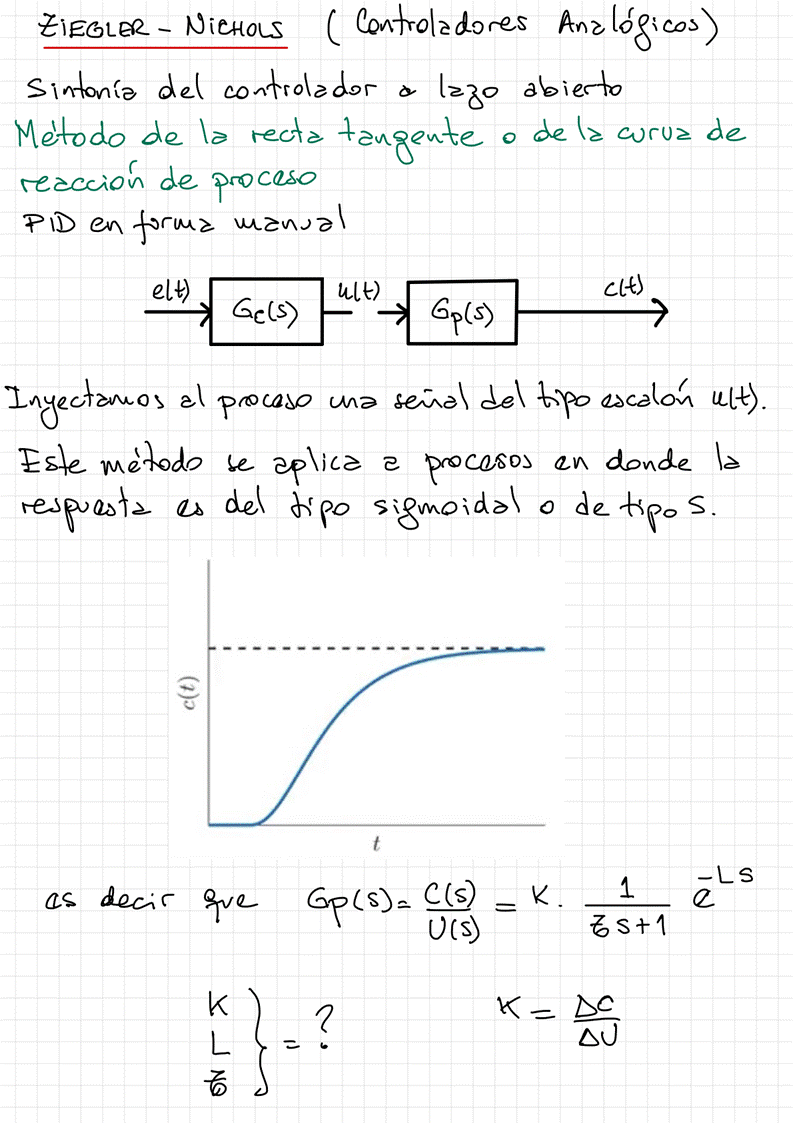 ZIEGLER - NICHOLS (Controladores Analógicos)
Sintonía del controlador a lazo abierto
Método de la recta tangente o de la curva de
reacción de proceso
PID en forma manual
e(t) Gc(s) u(t) Gp(s) c(t)
Inyectamos al proceso una señal del tipo escalón u(t).
Este método se aplica a procesos en donde la
respuesta es del tipo sigmoidal o de tipo S.
c(t)
t
es decir que Gp(s) = C(s)/U(s) = K · 1/(τ₀s+1) e^-Ls
K
L } = ?
τ₀
K = ΔC/ΔU